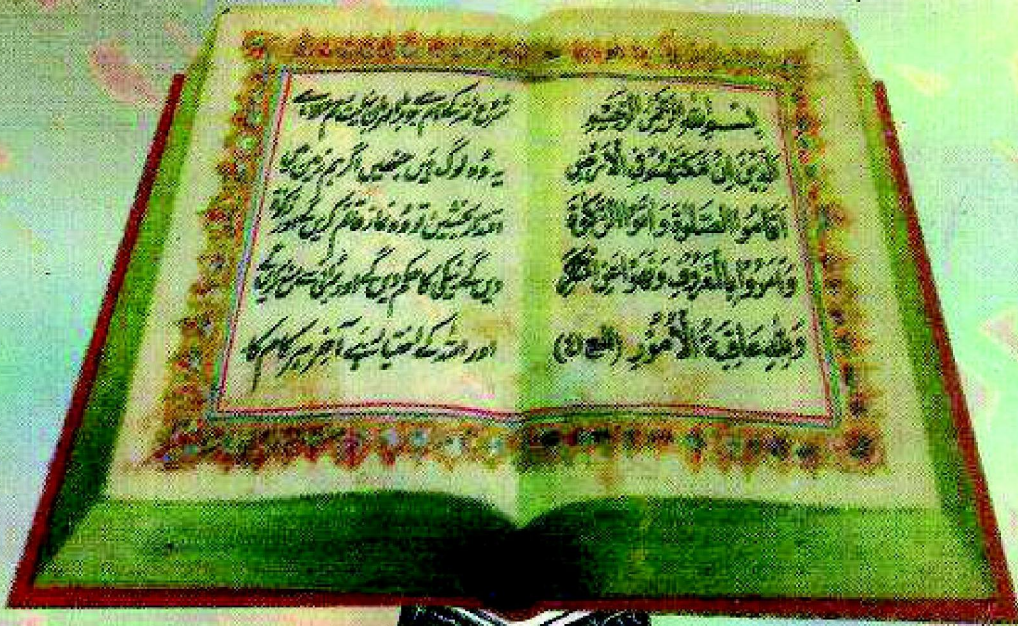 بِسْمِ اللهِ الرَّحْمٰنِ الرَّحِيْمِ
اَلَّذِيْنَ اِنْ مَّكَّنّٰهُمْ فِي الْاَرْضِ
اَقَامُوا الصَّلٰوةَ وَاٰتَوُا الزَّكٰوةَ
وَاَمَرُوْا بِالْمَعْرُوْفِ وَنَهَوْا عَنِ الْمُنْكَرِ
وَلِلّٰهِ عَاقِبَةُ الْاُمُوْرِ (الحج)
شروع اللہ کے نام سے جو بڑا مہربان نہایت رحم والا ہے
یہ وہ لوگ ہیں جنھیں اگر ہم زمین میں
اقتدار بخشیں تو وہ نماز قائم کریں گے اور زکوٰۃ
دیں گے نیکی کا حکم دیں گے اور برائی سے منع کریں گے
اور اللہ کے اختیار میں ہے آخر ہر کام کا